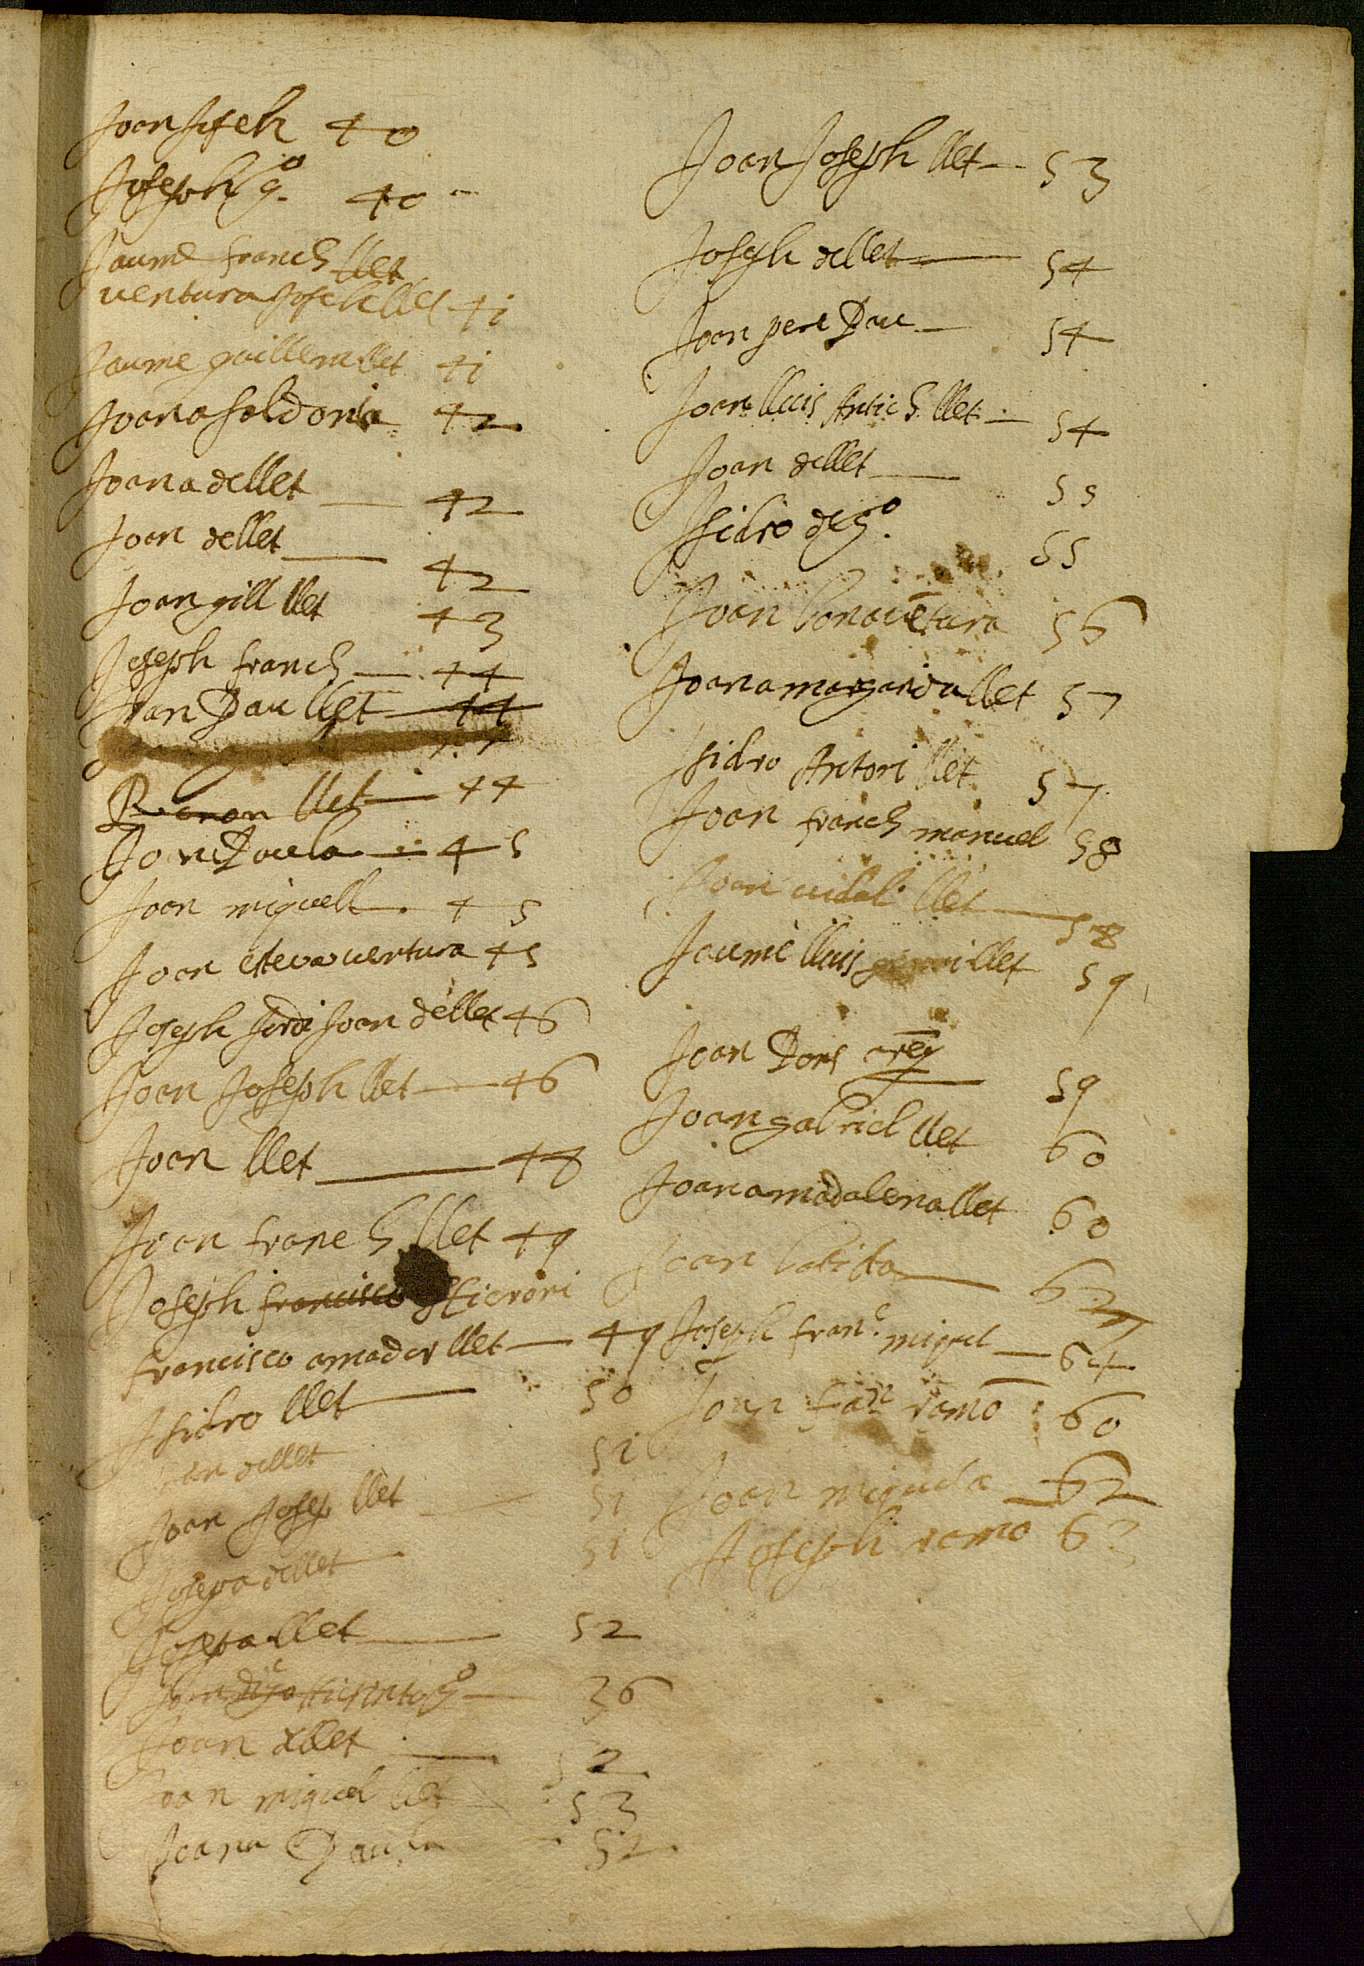 Joan Joseh 40
Joseph gº. 40
Jaume franch llet
ventura Joseh llet 41
Jaume guillem llet 41
Joana faldonia 42
Joana dellet 42
Joan dellet 42
Joan gill llet 43
Joseph franch 44
Joan Pau llet 44
llet 44
Joan Paula 45
Joan miquell 45
Joan esteva ventura 45
Joseph Jordi Joan dellet 46
Joan Joseph llet 46
Joan llet 48
Joan franch llet 49
Joseph francisco
francisco amador llet 49
Isidro llet 50
dellet 51
Joan Josep llet 51
Josepa dellet 51
Josepa llet 52
36
Joan dellet 52
Joan miquel llet 53
Joana Paula 52
Joan Joseph llet 53
Joseph dellet 54
Joan pere Pau 54
Joan lluis Antich llet 54
Joan dellet 55
Isidro de gº. 55
Joan bonavētura 56
Joana margarida llet 57
Isidro Antoni llet 57
Joan franch manuel 58
Joan vidal llet 58
Jaume lluis llet 59
Joan Pons 59
Joan gabriel llet 60
Joana madalena llet 60
Joan batista 62
Joseph franc. miquel 64
Joan fran ramō 60
Joan miquela 62
Joseph ramō 63